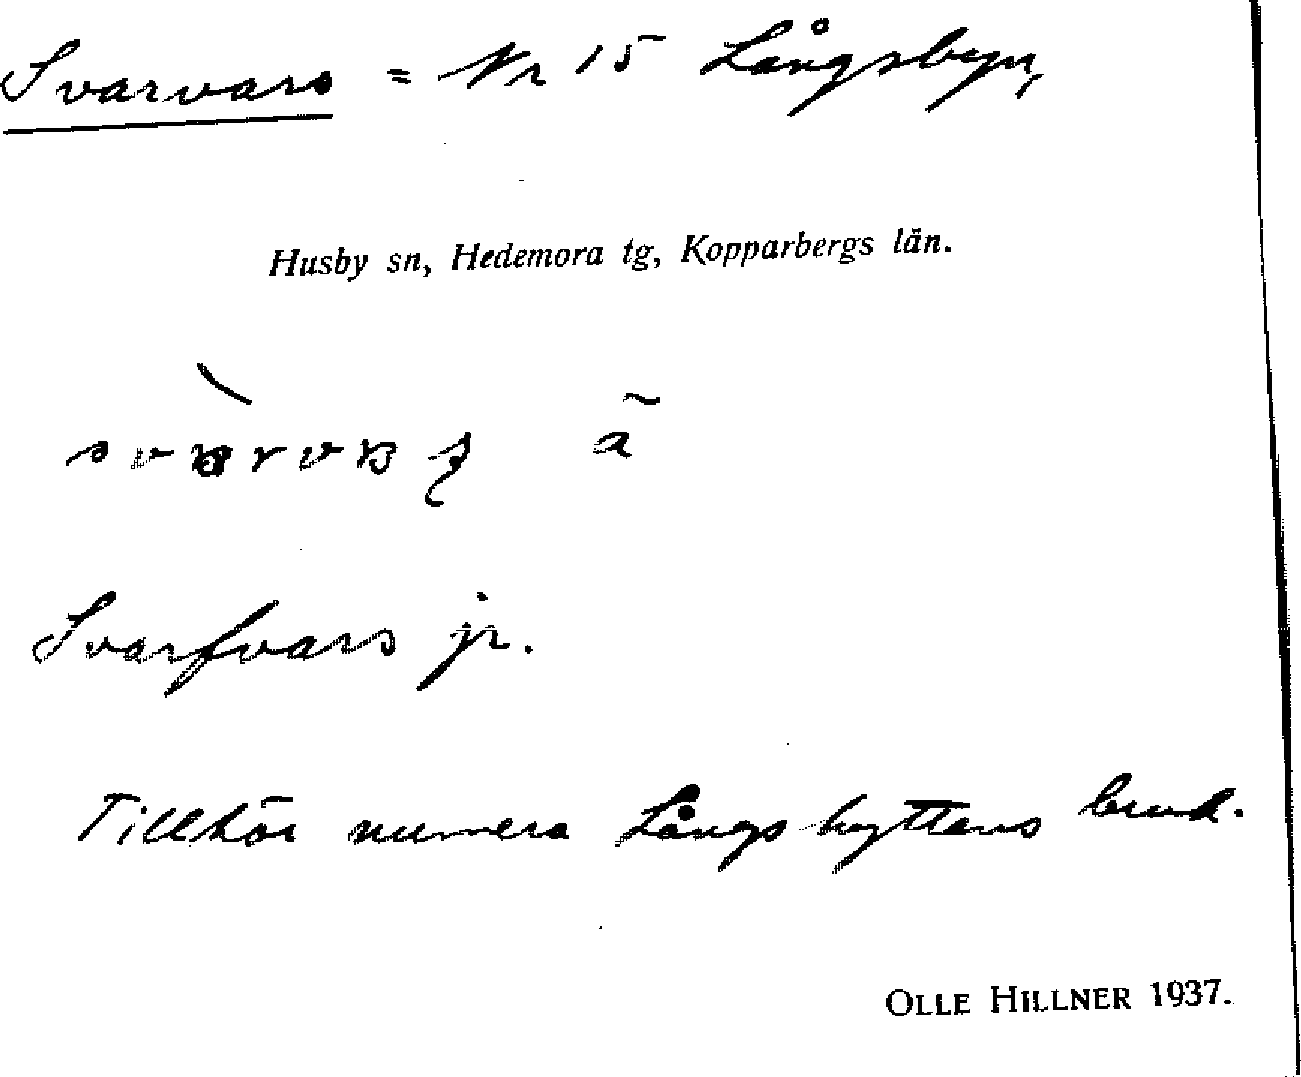 Svarvars = Nr 15 Långsbyn,
Husby sn, Hedemora tg, Kopparbergs län.
Svarfvars jr.
Tillhör numera Långshyttans bruk.
OLLE HILLNER 1937.